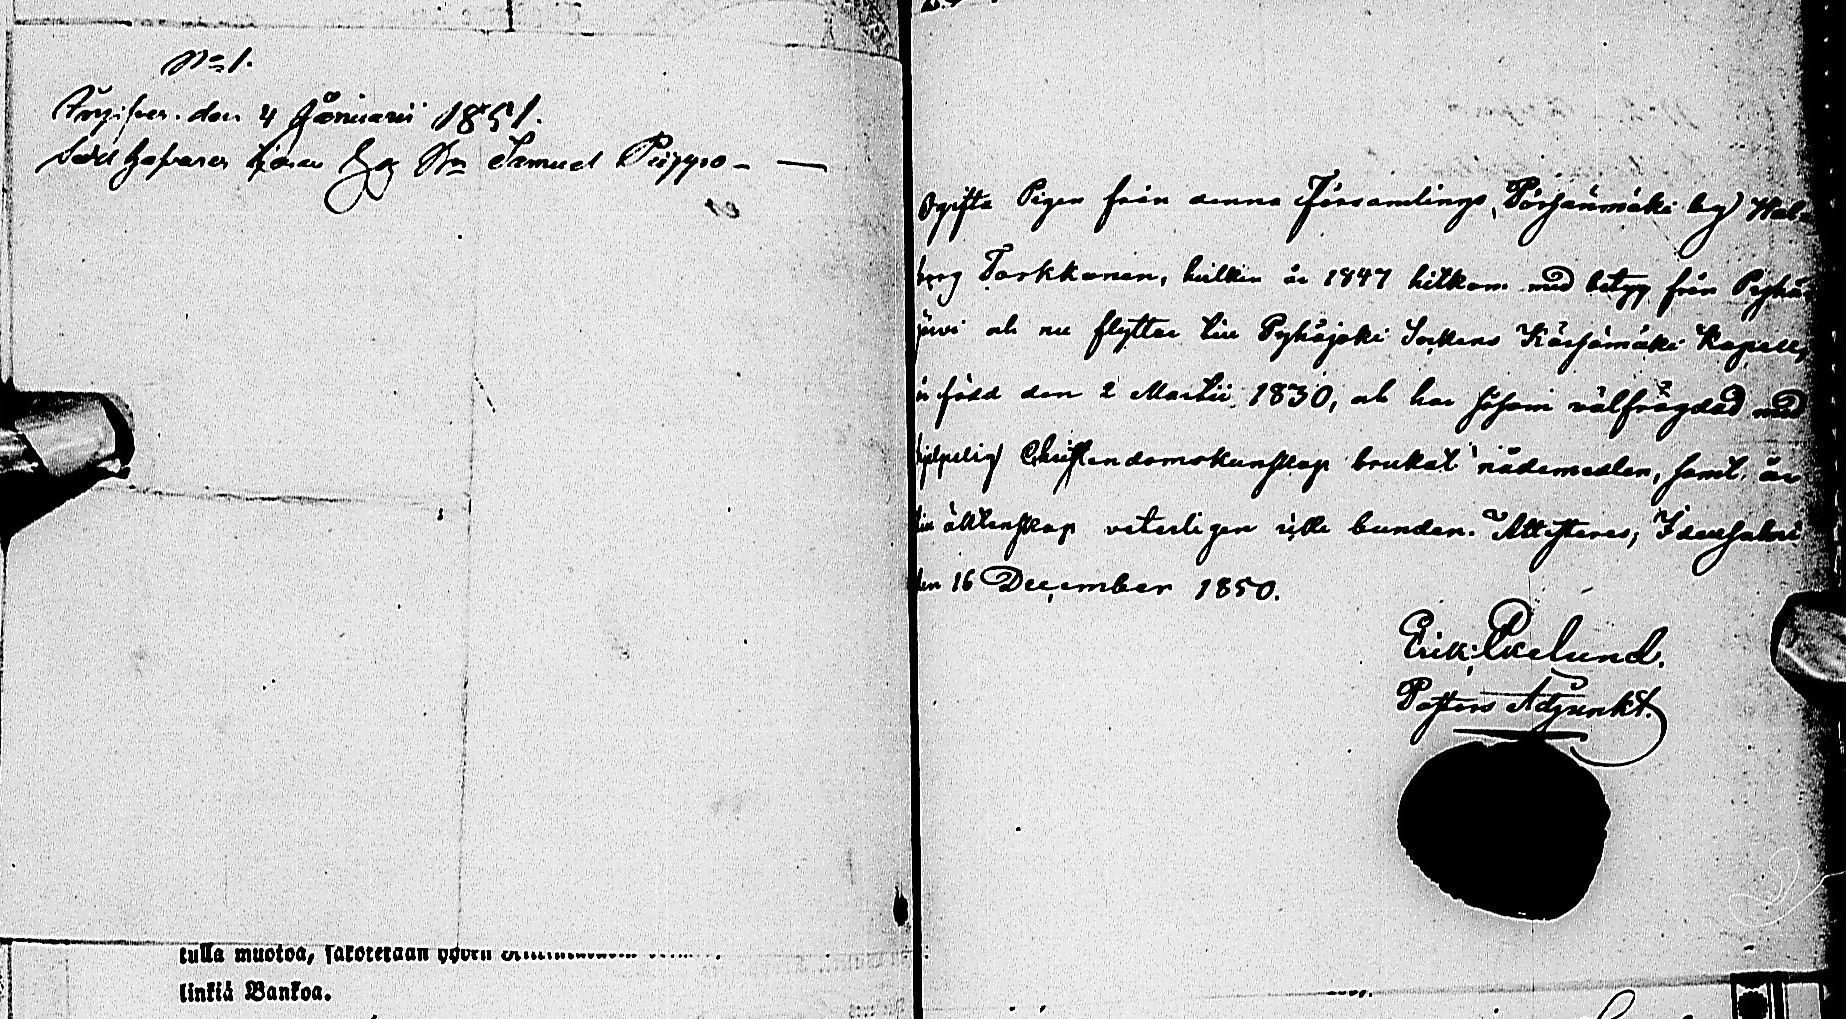 No 1.
den 4 Januarii 1851.
Samuel Piippo
Ogifta Pigan från denna Församlings, Pörsänmäki by) Wal-
borg Tarkkanen, hvilken år 1847 hitkom med betyg från Pyhä-
järvi och nu flyttar till Pyhäjoki Sockens Kärsämäki Kapell,
är född den 2 Martii 1830, och har såsom välfrägdad med
hjelplig Christendomskunskap brukat nådemedlen, samt är
till äktenskap veterligen icke bunden. Attesteras, Idensalmi
den 16 December 1850.
Erik Ekelund.
Pastors Adjunkt.
tulla muotoa, sakotetaan
linkiä Bankoa.